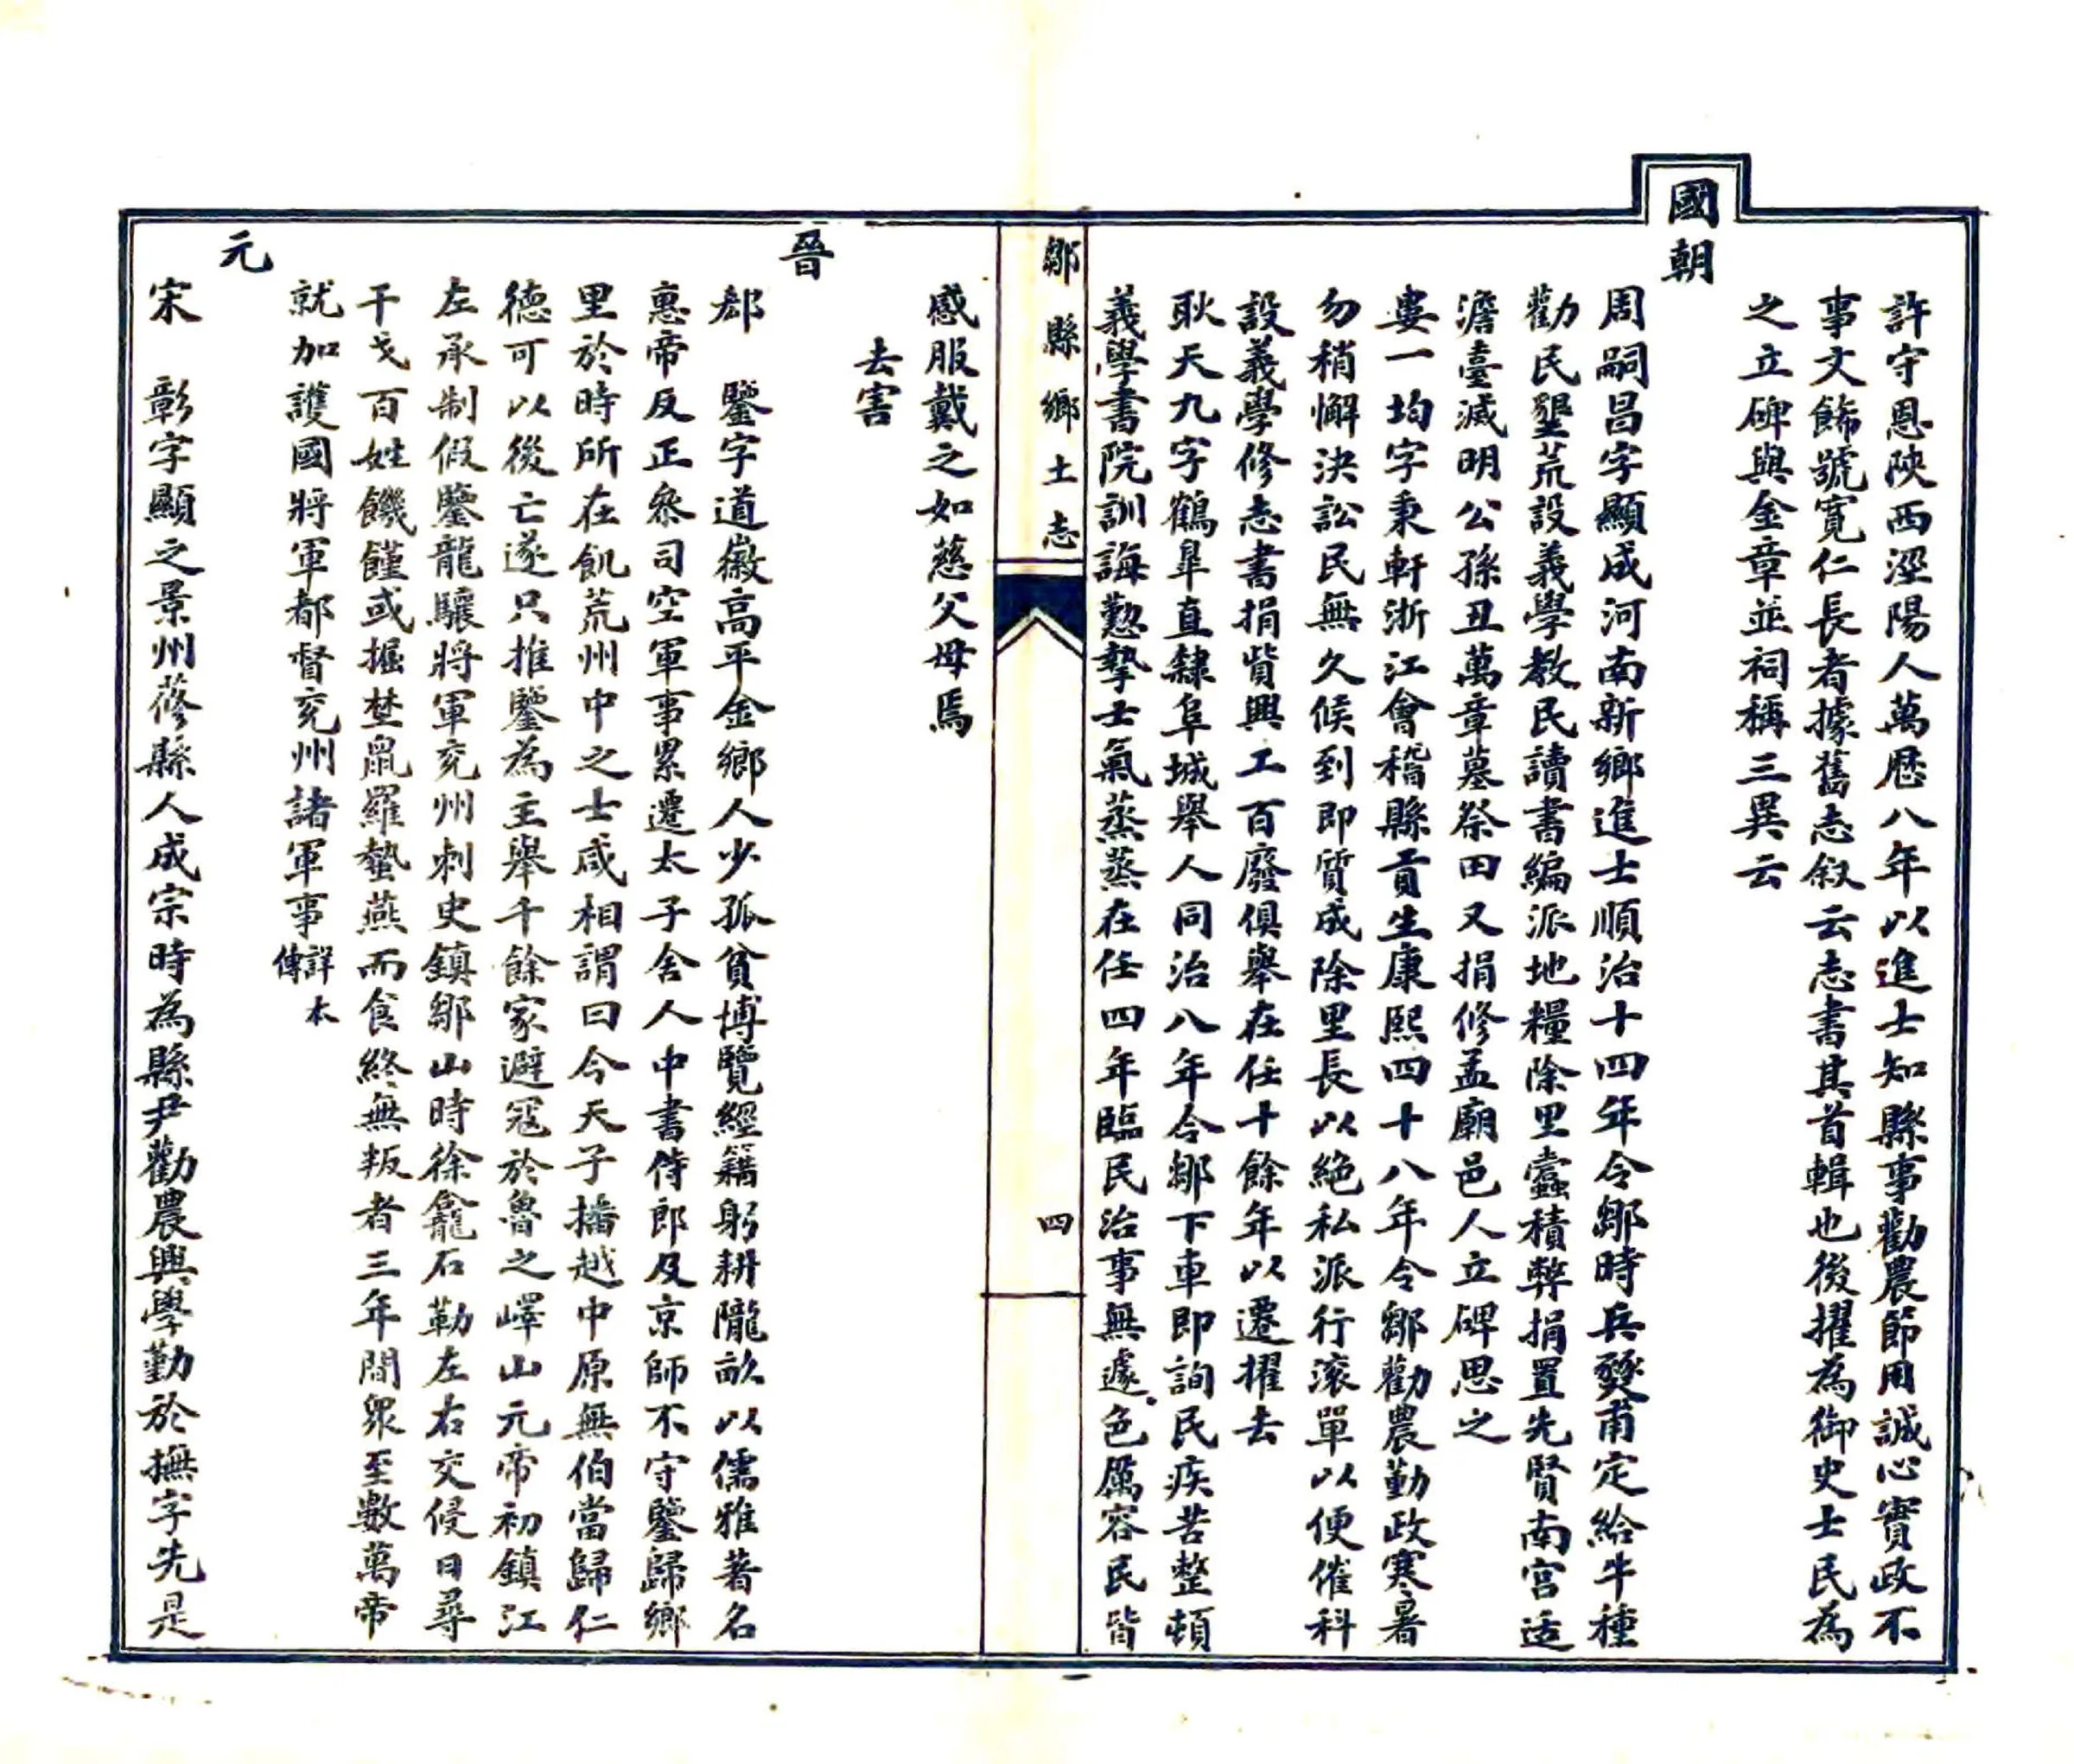 許守恩陝西涇陽人萬厯八年以進士知縣事勸農節用誠心實政不
事文餙號寛仁長者據舊志叙云志書其首輯也後擢為御史士民為
之立碑與金章並祠稱三異云
國朝
周嗣昌字顯成河南新鄉進士順治十四年令鄒時兵燹甫定給牛種
勸民墾荒設義學教民讀書編派地糧除里蠹積弊捐置先賢南宮适
澹臺滅明公孫丑萬章墓祭田又捐修孟廟邑人立碑思之
婁一均字秉軒浙江會稽縣貢生康熙四十八年令鄒勸農勤政寒暑
勿稍懈決訟民無久候到即質成除里長以絕私派行滚單以便催科
設義學修志書捐貲興工百廢俱舉在任十餘年以遷擢去
耿天九字鶴臯直隸阜城舉人同治八年令鄒下車即詢民疾苦整頓
義學書院訓誨懃摯士氣蒸蒸在任四年臨民治事無遽色厲容民皆
鄒縣鄉土志
四
感服戴之如慈父母焉
去害
晉
郄　鑒字道徽高平金鄉人少孤貧博覽經籍躬耕隴畝以儒雅著名
惠帝反正叅司空軍事累遷太子舍人中書侍郎及京師不守鑒歸鄉
里於時所在飢荒州中之士咸相謂曰今天子播越中原無伯當歸仁
德可以後亡遂只推鑒為主舉千餘家避冦於魯之嶧山元帝初鎮江
左承制假鑒龍驤將軍兖州刺史鎮鄒山時徐龕石勒左右交侵日尋
干戈百姓饑饉或掘埜鼠羅蟄燕而食終無叛者三年間眾至數萬帝
就加護國將軍都督兖州諸軍事詳本傳
元
宋　彰字顯之景州蓨縣人成宗時為縣尹勸農興學勤於撫字先是